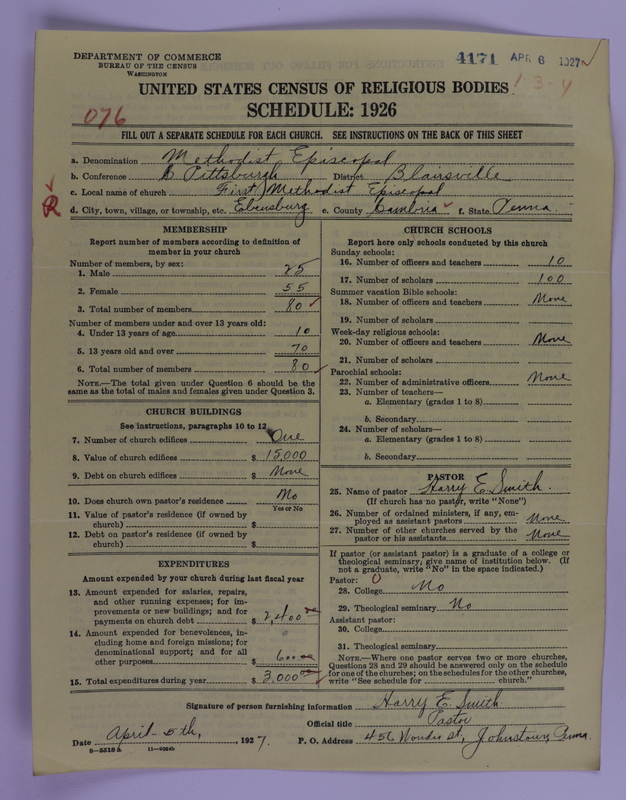 DEPARTMENT OF COMMERCE
BUREAU OF THE CENSUS
WASHINGTON
4171 APR 6 1927
UNITED STATES CENSUS OF RELIGIOUS BODIES
! 3-4
SCHEDULE: 1926
076
FILL OUT A SEPARATE SCHEDULE FOR EACH CHURCH. SEE INSTRUCTIONS ON THE BACK OF THIS SHEET
a. Denomination Methodist Episcopal
b. Conference Pittsburgh District Blairsville
c. Local name of church First Methodist Episcopal
R d. City, town, village, or township, etc. Ebensburg e. County Cambria f. State Penna.
MEMBERSHIP
Report number of members according to definition of
member in your church
Number of members, by sex:
1. Male 25
2. Female 55
3. Total number of members 80
Number of members under and over 13 years old:
4. Under 13 years of age 10
5. 13 years old and over 70
6. Total number of members 80
NOTE.—The total given under Question 6 should be the
same as the total of males and females given under Question 3.
CHURCH BUILDINGS
See instructions, paragraphs 10 to 12
7. Number of church edifices One
8. Value of church edifices $ 15,000
9. Debt on church edifices $ None
10. Does church own pastor's residence No
Yes or No
11. Value of pastor's residence (if owned by
church) $
12. Debt on pastor's residence (if owned by
church) $
EXPENDITURES
Amount expended by your church during last fiscal year
13. Amount expended for salaries, repairs,
and other running expenses; for im-
provements or new buildings; and for
payments on church debt $ 2,400 00
14. Amount expended for benevolences, in-
cluding home and foreign missions; for
denominational support; and for all
other purposes $ 600 00
15. Total expenditures during year $ 3,000 00
CHURCH SCHOOLS
Report here only schools conducted by this church
Sunday schools:
16. Number of officers and teachers 10
17. Number of scholars 100
Summer vacation Bible schools:
18. Number of officers and teachers None
19. Number of scholars
Week-day religious schools:
20. Number of officers and teachers None
21. Number of scholars
Parochial schools:
22. Number of administrative officers None
23. Number of teachers—
a. Elementary (grades 1 to 8)
b. Secondary
24. Number of scholars—
a. Elementary (grades 1 to 8)
b. Secondary
PASTOR
25. Name of pastor Harry E. Smith.
(If church has no pastor, write "None")
26. Number of ordained ministers, if any, em-
ployed as assistant pastors None
27. Number of other churches served by the
pastor or his assistants None
If pastor (or assistant pastor) is a graduate of a college or
theological seminary, give name of institution below. (If
not a graduate, write "No" in the space indicated.)
Pastor: 0
28. College No
29. Theological seminary No
Assistant pastor:
30. College
31. Theological seminary
NOTE.—Where one pastor serves two or more churches,
Questions 28 and 29 should be answered only on the schedule
for one of the churches; on the schedules for the other churches,
write "See schedule for church."
Signature of person furnishing information Harry E. Smith.
Official title Pastor
Date April 5th, 1927. P. O. Address 456 Wonder St, Johnstown, Penna.
8-5318 a 11-6024b